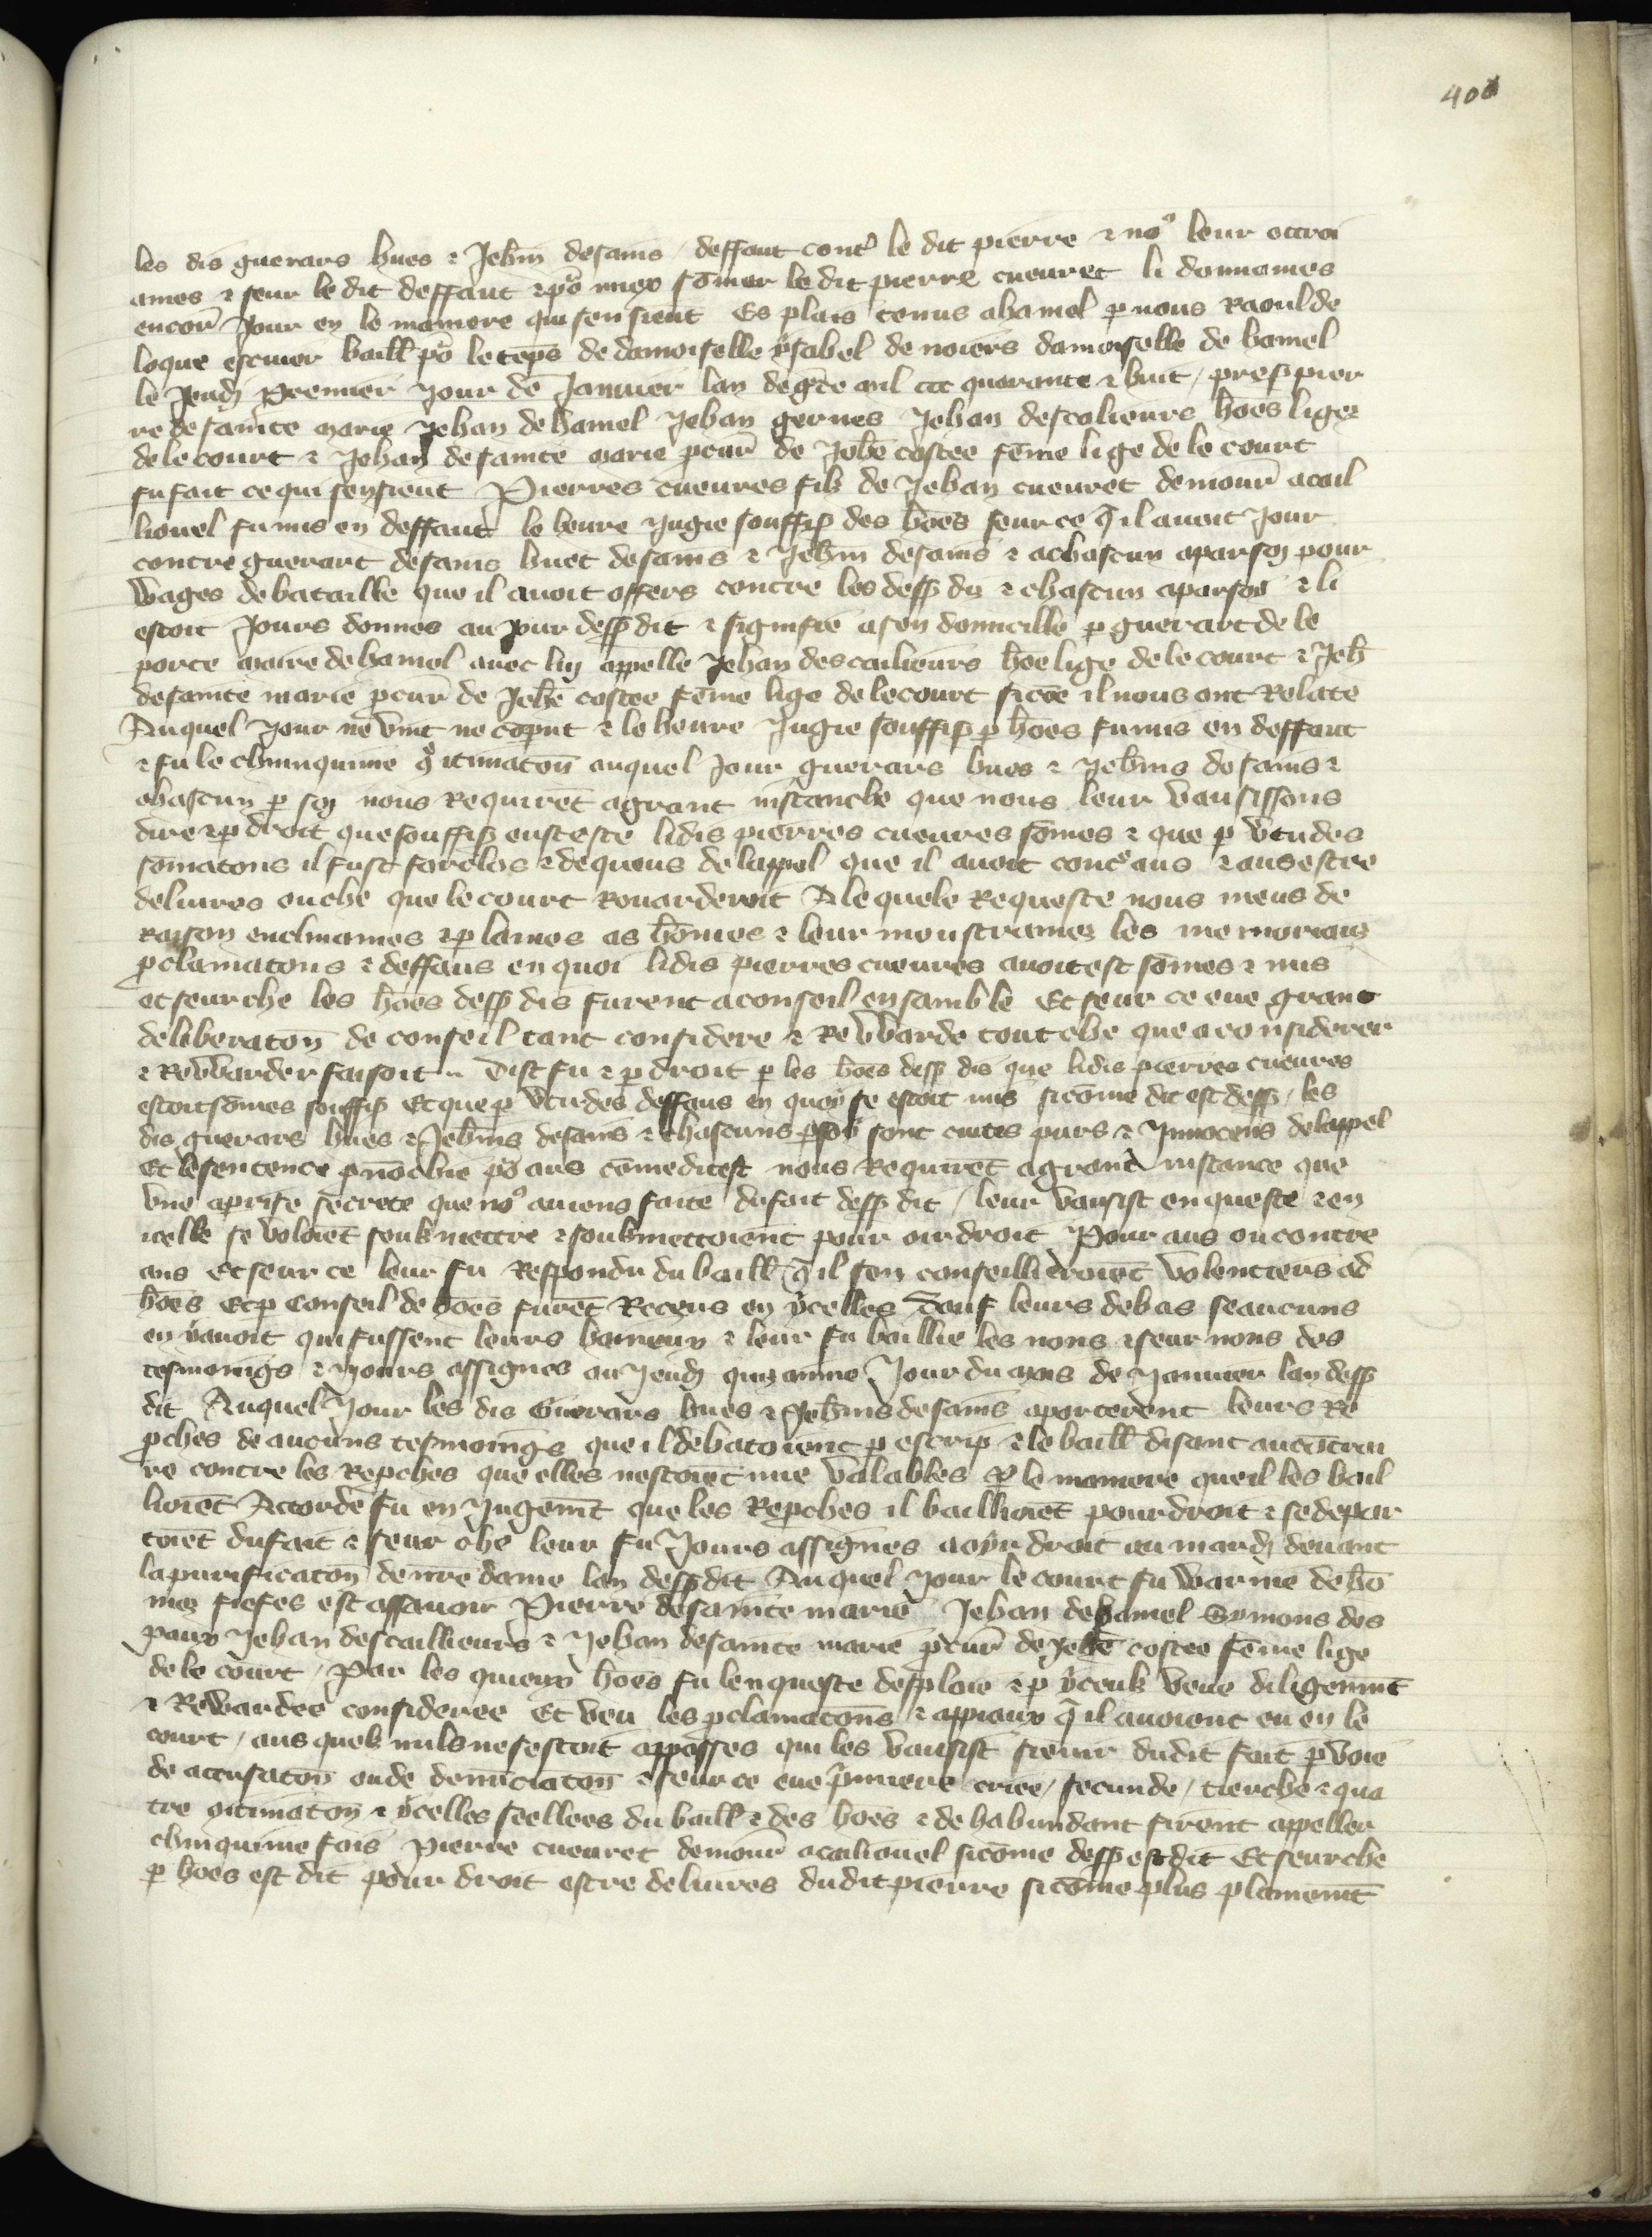 400
les dis guerars hues & Jehin desains / deffaut contᵉ le dit pierre & noꝰ leur ottroi
ames & seur le dit deffaut & po᷑ miex som̄er le dit pierre cueuret li donnames
encor̄ Jour en le maniere qui sensient Es plais tenus ahamel ꝑ nous Raoul de
loque escuier baill᷑ po᷑ le teps̄ de damoiselle ysabel de noiers damoiselle de hamel
le Jeudj Premier Jour de Januier lan degr̄ce mil ccc quarante & huit / presꝭ pier
re de sainte marie Jehan de hamel Jehan gernes Jehan descalieurs hōes liges
de le court & Jehan de sainte marie ꝓcur̄ de Jehē costee fēme lige de le court
fu fait ce qui sensient Pierres cueures filz de Jehan cueuret demour̄ acail
liouel fu mis en deffaut le heure Jugie souffisꝭ des hōes seur ce q̄ il auoit Jour
contre guerart desains huet desains & Jehin desains & achascun aparsoy pour
wages de bataille que il auoit offers contre les dessꝰ dis & chascun aparsoi & li
estoit Jours donnes au Jour dessꝰ dit & signifie a son domicille ꝑ guerart de le
porte maire de hamel auec luy appelle Jehan descailieurs hōe lige de le court & Jeh̄
de sainte marie ꝓcur̄ de Jehē costee fēme lige de le court sicōe il nous ont Relate
Auquel Jour ne vint ne cōput & le heure Jugie souffisꝭ ꝑ hōes fu mis en deffaut
& fu le chinquime 9tinuatoū auquel Jour guerars hues & Jehins desains &
chascun ꝑ soy nous Requirēt agrant instanche que nous leur vausissons
dire & ꝑ droit que souffisꝭ eust este lidis pierres cueures som̄es & que ꝑ v̄tu des
som̄atons il fust forclos & dequeus de lappel que il auoit contᵉ aus & aus estre
deliures ou che que le court Rouarderoit A le quele Requeste nous meus de
Raison enclinames & ꝑlames as hōmes & leur moustrames les memoriaus
ꝓclamatons & deffaus en quoi lidis pierres cueures auoit est som̄es & mis
et seur che les hōes dessꝰ dis furent aconseil ensamble Et seur ce eue grant
deliberatoū de conseil tant considere & Rewarde tout che que aconsiderer
& Rewarder faisoit Dist fu & ꝑ droit ꝑ les hōes dessꝰ dis que lidis pierres cueures
estoit som̄es souffisꝭ Et que ꝑ v̄tu des deffaus en quoy se estoit mis sicōme dit est dessꝰ / les
dis guerars hues & Jehins desains & chascuns ꝑ soy sont cuites purs & Innocens de lappel
Et le sentence ꝓnōchie po᷑ aus cōme dit est nous Requirēt agrant instance que
vne aprise secrete que noꝰ auiens faite du fait dessꝰ dit / leur vausist enqueste & en
icelle se voloiēt soubzmettre & soubzmettoient pour oir droit Pour aus ou contre
aus Et seur ce leur fu Respondu du baill᷑ q̄ il sen conseilliéroiēt volentiers as
hōes Et ꝑ Conseil de hōes furēt Receus en ycelles Sauf leurs debas se aucuns
en y auoit qui fussent leurs haineux & leur fu baillie les nons & seurnons des
tesmoings & Jours assignes au Jeudj quinsime Jour du mois de Januier lan dessꝰ
dit Auquel Jour les dis Guerars hues & Jehins desains aporterent leurs Re
ꝓches de aucuns tesmoings que il debatoient ꝑ escripꝭ & le baill᷑ disant au contrai
re contre les Reꝓches que elles nestoiēt mie valables ꝑ le maniere que il les bail
lioiēt Accorde fu en Jugemt̄ que les Reꝓches il baillioiēt pour droit & se depar
toiēt du fait & seur che leur fu Jours assignes a oyr droit au mardj deuant
la purificatoū de nr̄e dame lan dessꝰ dit Auquel Jour le court fu warnie de hō
mes fiefes est assauoir Pierre de sainte marie Jehan dehamel Symons des
paux Jehan descaillieurs & Jehan de sainte marie ꝓcur̄ de Jehē costee fēme lige
de le court / Par les quieux hōes fu lenqueste desploie & ꝑ yceulz veue diligenmt̄
& Rewardee consideree Et veu les ꝓclamatoūs & appiaux q̄ il auoient eu en le
court / aus quelz nuls ne sestoit apposses qui les vausist sieuir dudit fait ꝑ voie
de acusatoū ou de denūciatoū & seur ce eue p̄miere criee / secunde / tierche & qua
tre 9tinuatoū & ycelles seellees du baill᷑ & des hōes & de habundant firent appeller
chinquime fois Pierre cueuret demour̄ acailiouel sicōme dessꝰ est dit Et seur che
ꝑ hōes est dit pour droit estre deliures dudit pierre sicōme plus plainemt̄